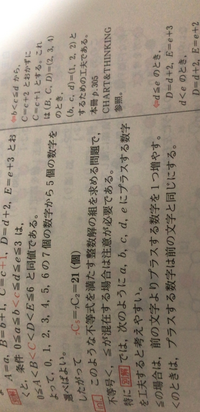 A=a, B=b+1, C=c+1, D=d+2, E=e+3 とお
と, 条件 0≦a≦b<c≦d≦e≦3 は,
0≦A<B<C<D>E≦6 と同値である。
よって, 0, 1, 2, 3, 4, 5, 6 の 7 個の数字から 5 個の数字を
選べばよい。
したがって ₇C₅=₇C₂=21 (個)
このような不等式を満たす整数解の組を求める問題で,
不等号 <, ≦ が混在する場合は注意が必要である。
特に 別解 では, 次のように a, b, c, d, e にプラスする数字
を工夫すると考えやすい。
≦ の場合は, 前の文字よりプラスする数字を 1 つ増やす。
< のときは, プラスする数字は前の文字と同じにする。
b<c≦d から,
C=c+2 とおかずに
C=c+1 とする。これ
は (B, C, D)=(2, 3, 4)
のとき,
(b, c, d)=(1, 2, 2) と
するための工夫である。
本冊 p.365
CHART&THINKING
参照。
d≦e のとき,
D=d+2, E=e+3
d<e のとき,
D=d+2, E=e+2